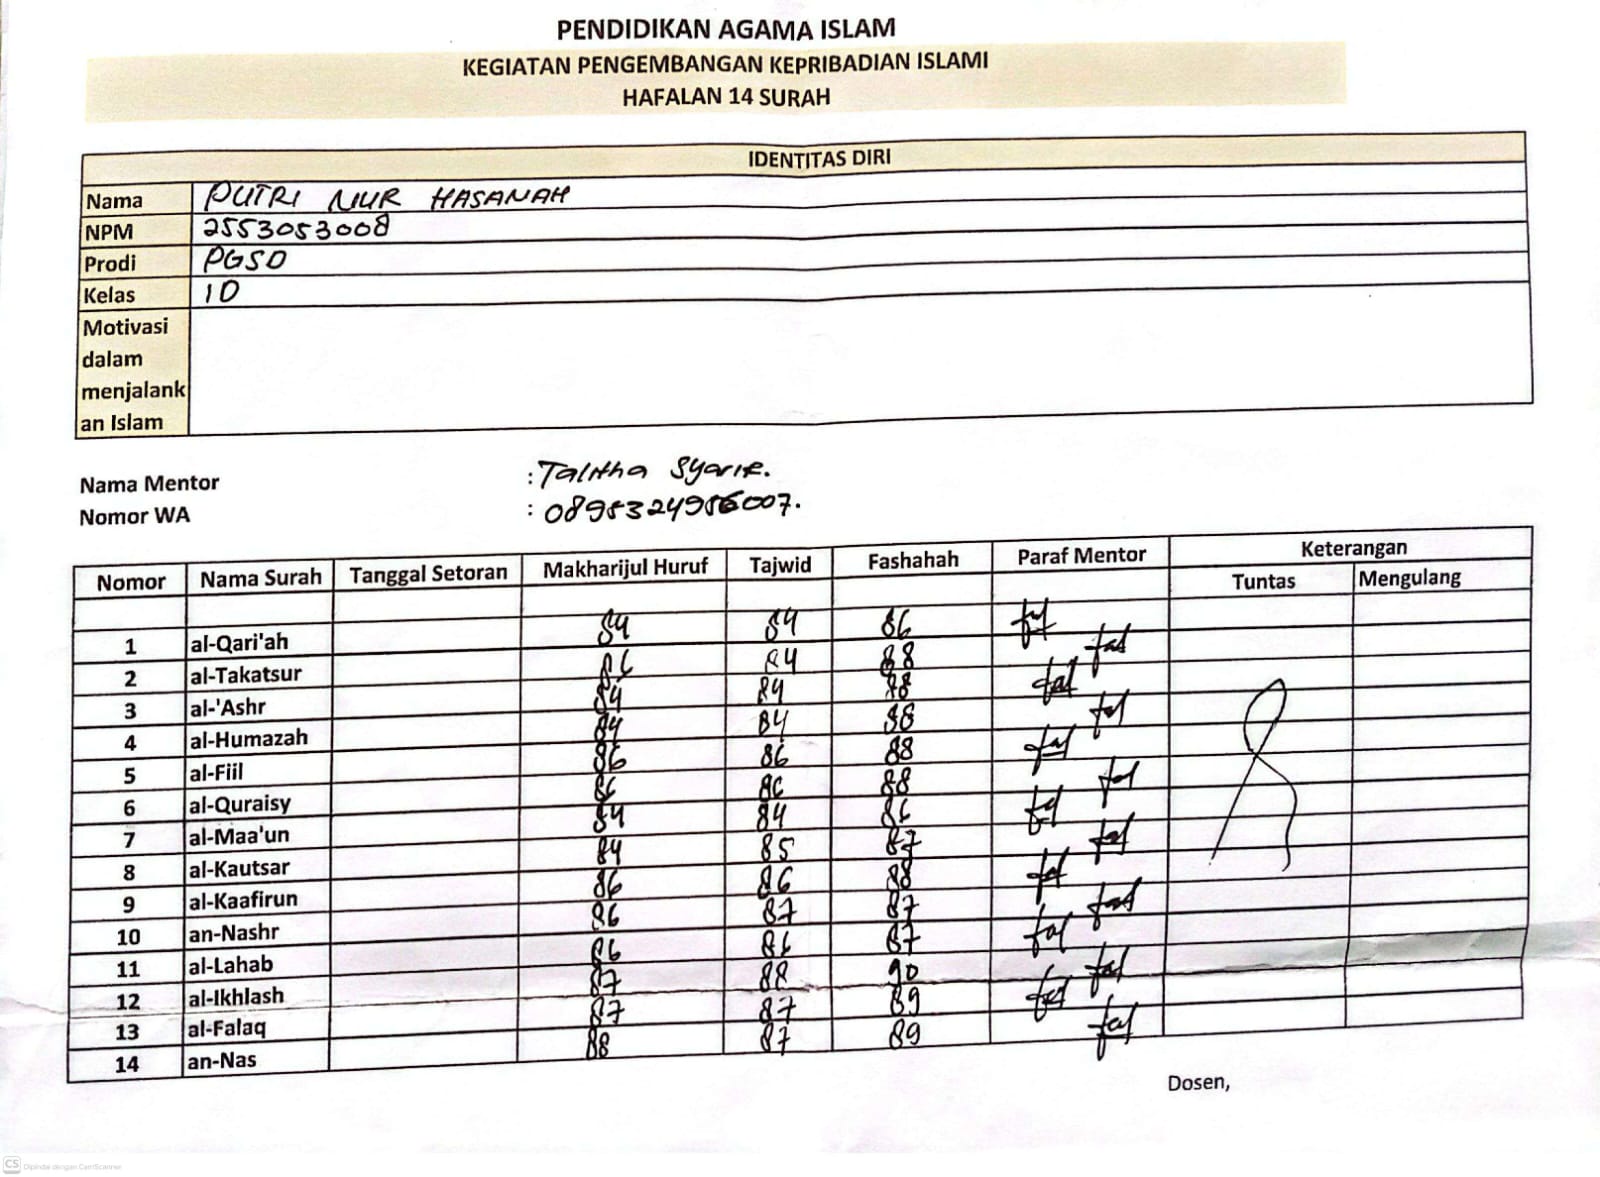 PENDIDIKAN AGAMA ISLAM
KEGIATAN PENGEMBANGAN KEPRIBADIAN ISLAMI
HAFALAN 14 SURAH
IDENTITAS DIRI
Nama PUTRI NUR HASANAH
NPM 2553053008
Prodi PGSD
Kelas 1D
Motivasi
dalam
menjalank
an Islam
Nama Mentor : Talitha Syarif.
Nomor WA : 0895324956007.
Nomor Nama Surah Tanggal Setoran Makharijul Huruf Tajwid Fashahah Paraf Mentor Keterangan
Tuntas Mengulang
1 al-Qari'ah 84 84 86
2 al-Takatsur 86 84 88
3 al-'Ashr 84 84 88
4 al-Humazah 84 84 88
5 al-Fiil 86 86 88
6 al-Quraisy 86 86 88
7 al-Maa'un 84 84 86
8 al-Kautsar 84 85 87
9 al-Kaafirun 86 86 88
10 an-Nashr 86 87 87
11 al-Lahab 86 86 87
12 al-Ikhlash 87 88 90
13 al-Falaq 87 87 89
14 an-Nas 88 87 89
Dosen,
CS Dipindai dengan CamScanner